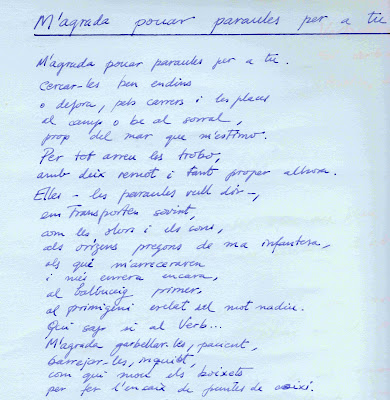 M'agrada pouar paraules per a tu
M'agrada pouar paraules per a tu.
Cercar-les ben endins
o defora, pels carrers i les places
al camp o bé al sorral,
prop del mar que m'estimo.
Per tot arreu les trobo,
amb deix remot i tant proper alhora.
Elles - les paraules vull dir -,
em transporten sovint,
com les olors i els sons,
als orígens pregons de ma infantesa,
als qui m'arreceraren
i més enrera encara,
al balbuceig primer,
al primigeni esclat del mot nadiu.
Qui sap si al Verb...
M'agrada garbellar-les, pacient,
barrejar-les, inquiet,
com qui mou els boixets
per fer l'encaix de puntes de coixí.